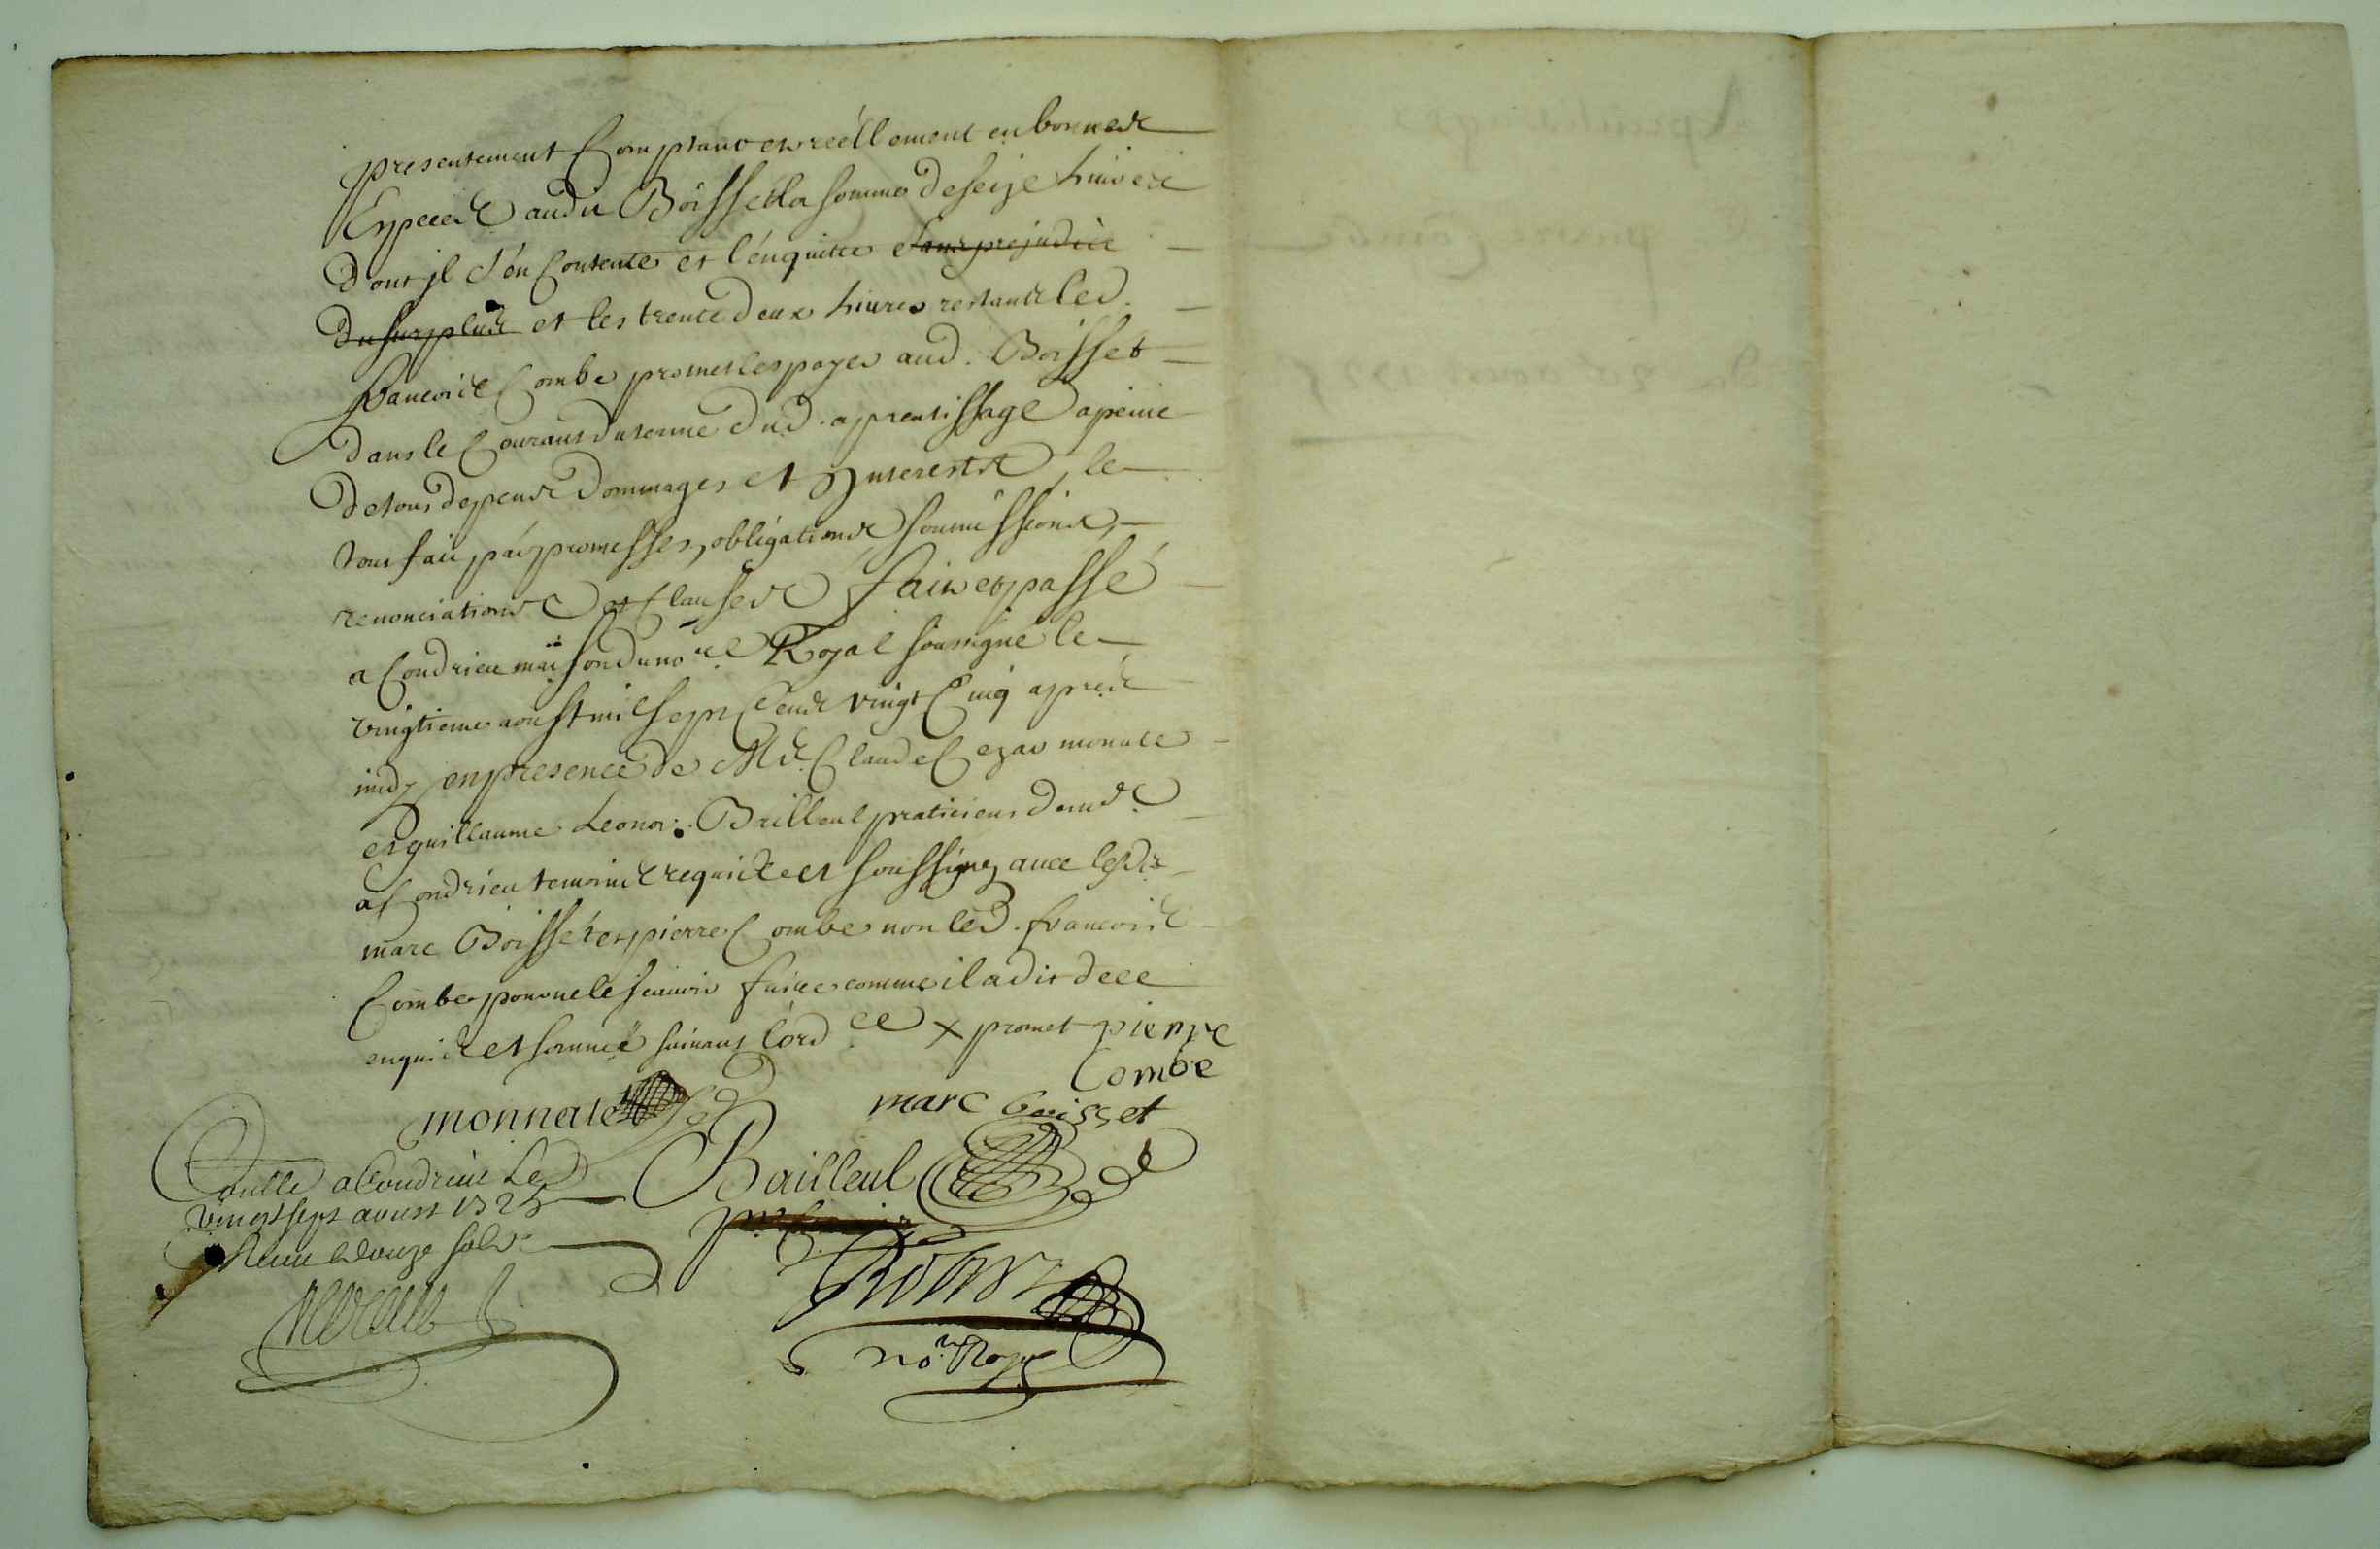 presentement Comptant et réellement en bonnes
Especes audit Boisset la somme de seize livres
dont jl s'en Contente et l'enquitte sans prejudice
du surplus et les trente deux livres restants led.
francois Combe promet les payer aud. Boisset
dans le Courant du terme dud. aprentissage a peine
de tous depens dommages et Interests, le
tout fait par promesses, obligations soumissions,
renonciations et Clauses fait et passé
a Condrieu maison du no.re Royal soussigné le
vingtieme aoust mil sept Cens vingt Cinq apres
midy en presence de Mrs. Claude Cezar monate
et guillaume Leonor Bailleul praticiens dem.t
a Condrieu temoins requis et soussignez avec lesd.
marc Boisset et pierre Combe non led. francois
Combe pour ne le scavoir faire comme il a dit de ce
enquis et sommé suivant l'ord.ce x promet pierre
Combe
monnate marc boisset
Bailleul
Con.lle a Condrieu Le
vingt sept aoust 1725
Receu douze sols
no.re Royal